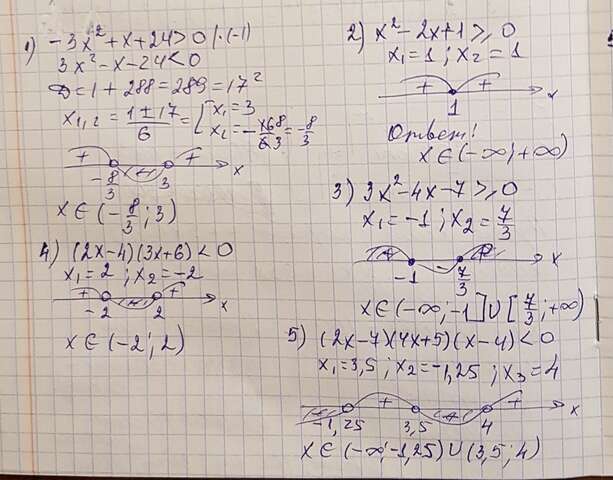 1) -3x²+x+24>0 |·(-1)
3x²-x-24<0
D=1+288=289=17²
x₁,₂ = (1±17)/6 = [x₁=3
x₂=-16/6=-8/3
+ - +
-8/3 3 x
x∈(-8/3; 3)
2) x²-2x+1⩾0
x₁=1; x₂=1
+ +
1 x
Ответ:
x∈(-∞;+∞)
3) 3x²-4x-7⩾0
x₁=-1; x₂=7/3
+ - +
-1 7/3 x
x∈(-∞;-1]∪[7/3;+∞)
4) (2x-4)(3x+6)<0
x₁=2; x₂=-2
+ - +
-2 2 x
x∈(-2;2)
5) (2x-7)(4x+5)(x-4)<0
x₁=3,5; x₂=-1,25; x₃=4
- + - +
-1,25 3,5 4 x
x∈(-∞;-1,25)∪(3,5;4)